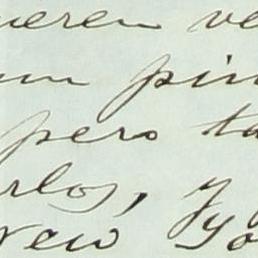 ueren ve
um pin
pero ta
rlos, y y
New Yo